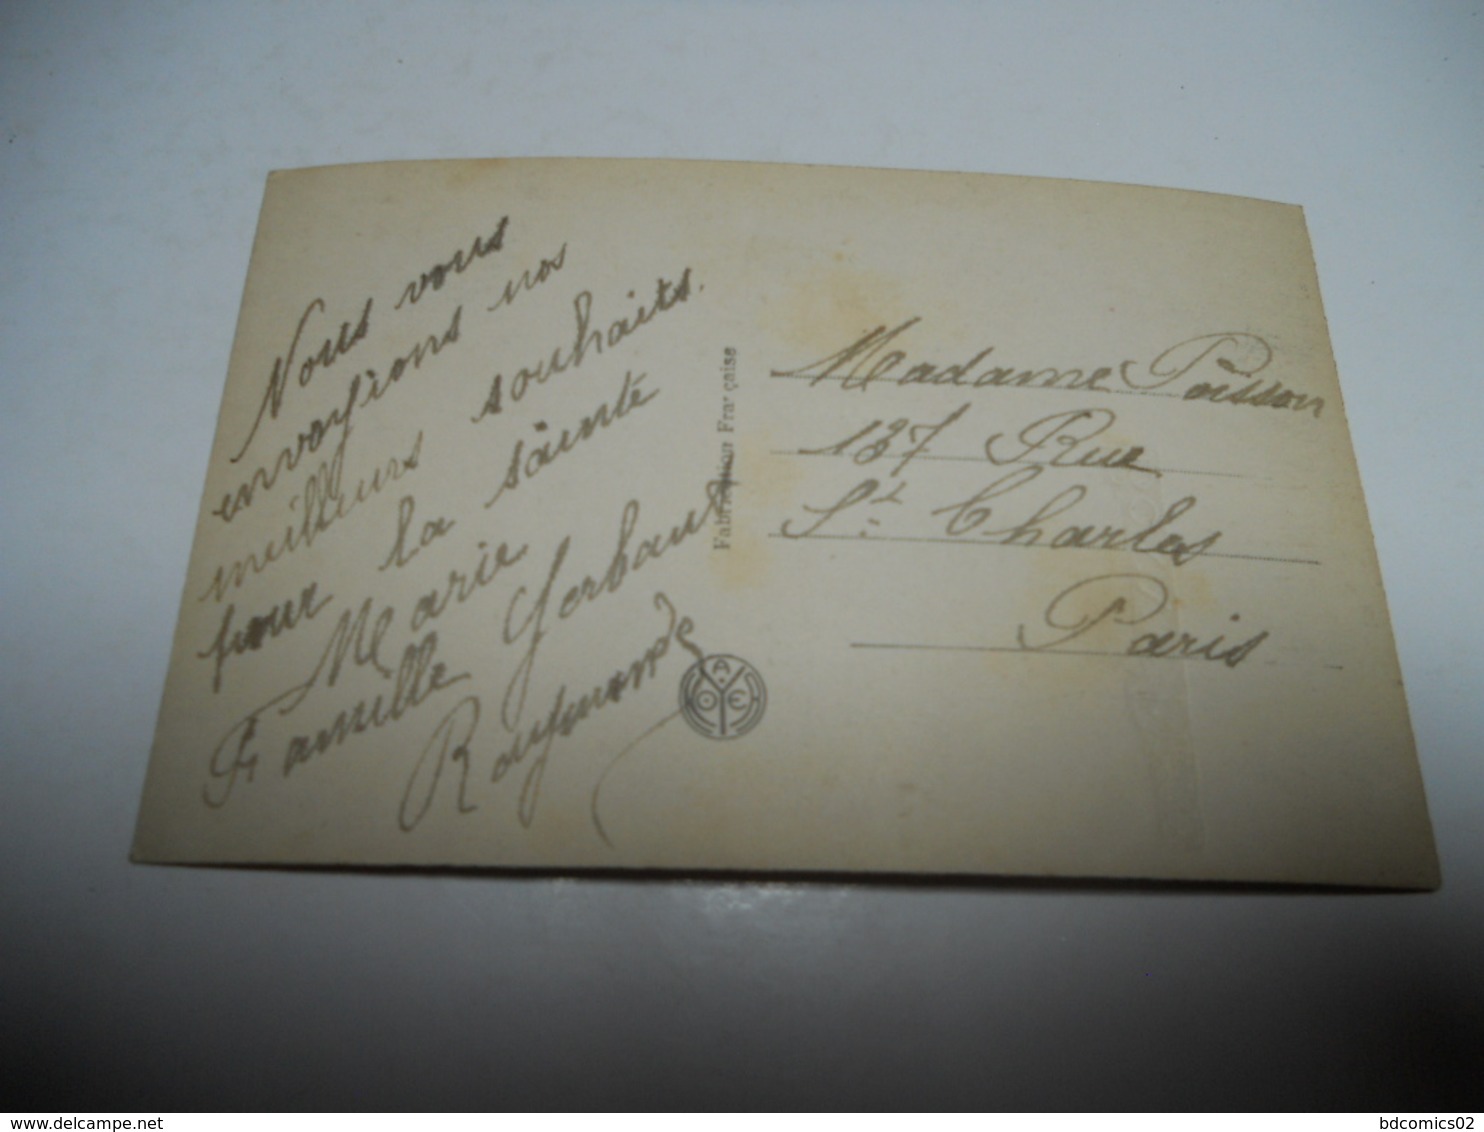 Nous vous
envoyions nos
meilleurs souhaits.
pour la sainte
Marie
Famille Gerbault
Raymonde
Fabrication Française
Madame Poisson
137 Rue
St Charles
Paris
delcampe.net
bdcomics02